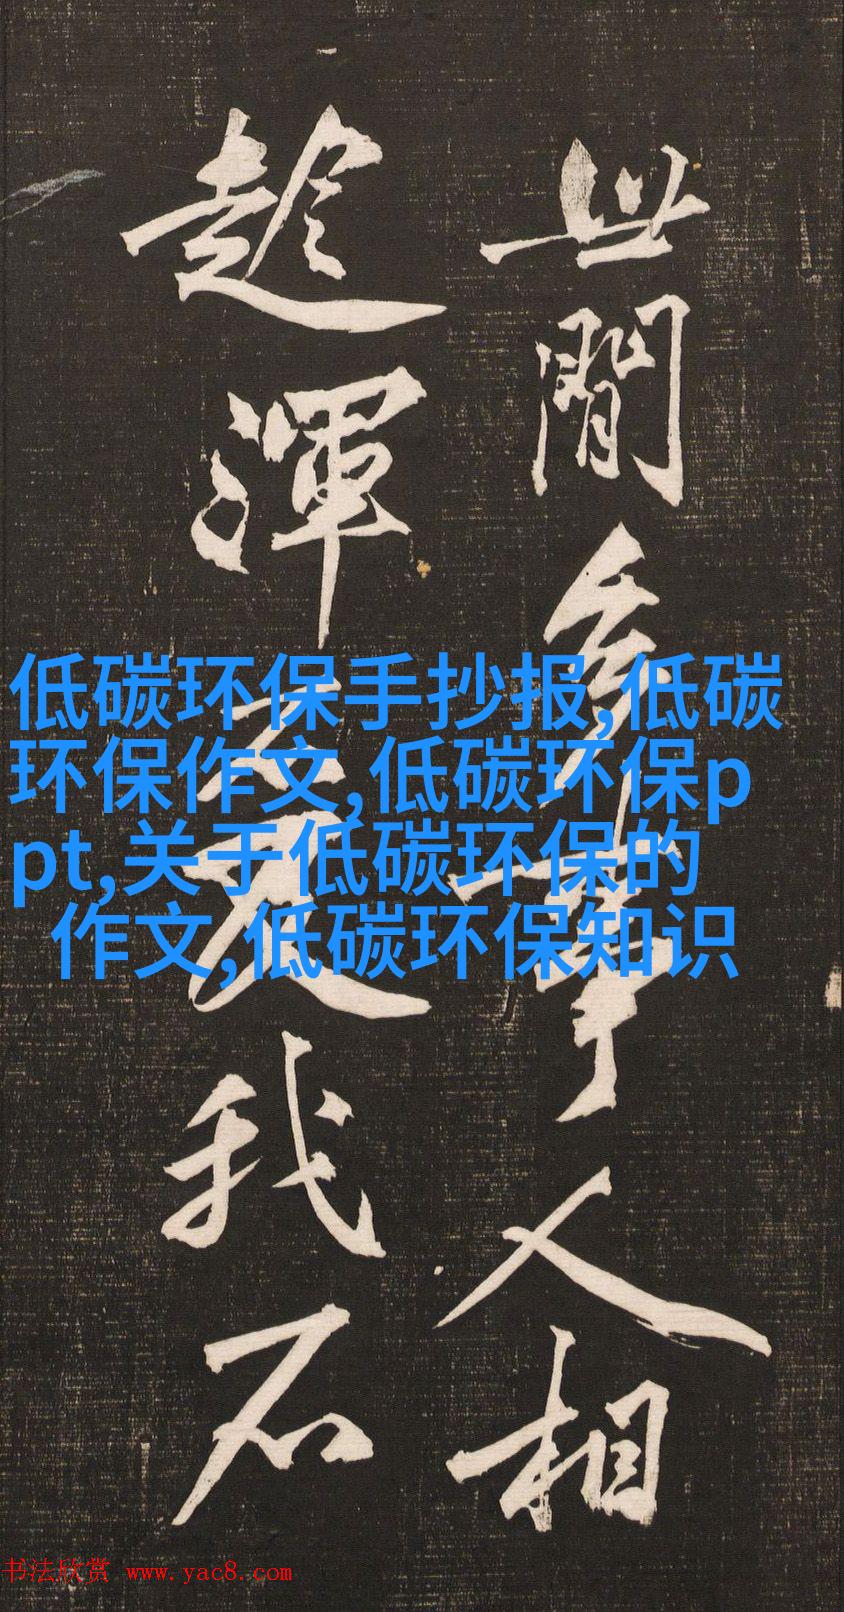 世間多事人相
趁渾我石
低碳环保手抄报,低碳
环保作文,低碳环保p
pt,关于低碳环保的
作文,低碳环保知识
书法欣赏 www.yac8.com